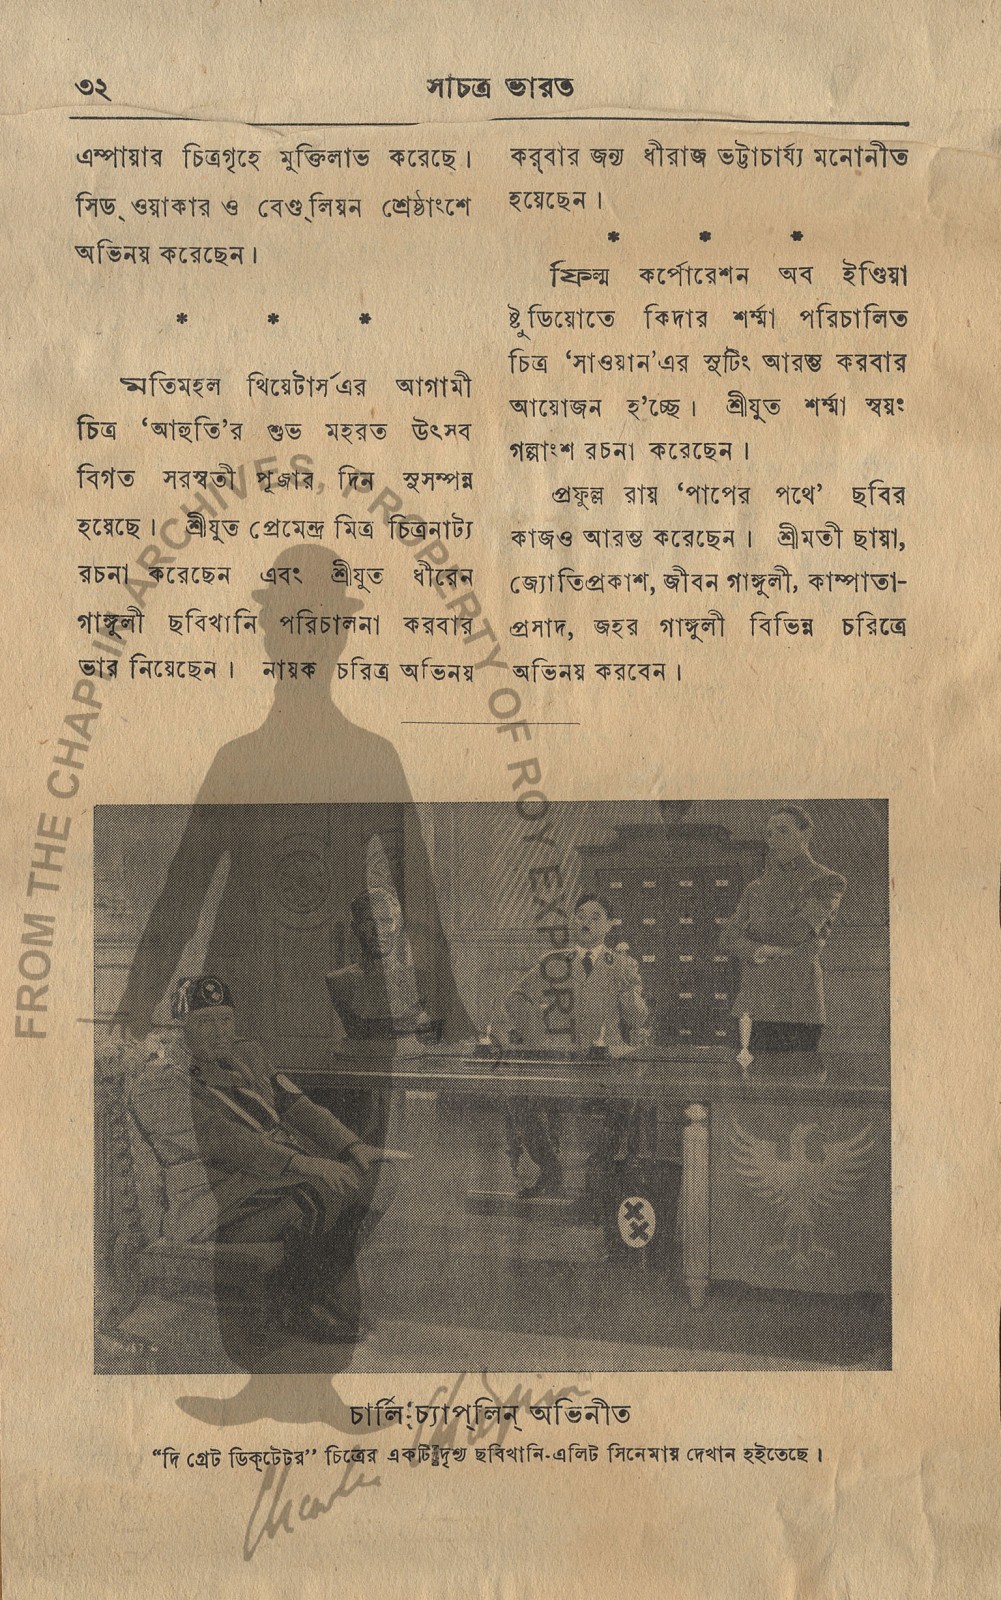 ৩২
সাচত্র ভারত
এম্পায়ার চিত্রগৃহে মুক্তিলাভ করেছে।
সিড্ ওয়াকার ও বেণ্ড্লিয়ন শ্রেষ্ঠাংশে
অভিনয় করেছেন।
* * *
মতিমহল থিয়েটার্স এর আগামী
চিত্র ‘আহুতি’র শুভ মহরত উৎসব
বিগত সরস্বতী পূজার দিন সুসম্পন্ন
হয়েছে। শ্রীযুত প্রেমেন্দ্র মিত্র চিত্রনাট্য
রচনা করেছেন এবং শ্রীযুত ধীরেন
গাঙ্গুলী ছবিখানি পরিচালনা করবার
ভার নিয়েছেন। নায়ক চরিত্র অভিনয়
কর্‌বার জন্য ধীরাজ ভট্টাচার্য্য মনোনীত
হয়েছেন।
* * *
ফিল্ম কর্পোরেশন অব ইণ্ডিয়া
ষ্টুডিয়োতে কিদার শর্ম্মা পরিচালিত
চিত্র ‘সাওয়ান’এর সুটিং আরম্ভ করবার
আয়োজন হ’চ্ছে। শ্রীযুত শর্ম্মা স্বয়ং
গল্পাংশ রচনা করেছেন।
প্রফুল্ল রায় ‘পাপের পথে’ ছবির
কাজও আরম্ভ করেছেন। শ্রীমতী ছায়া,
জ্যোতিপ্রকাশ, জীবন গাঙ্গুলী, কাম্পাতা-
প্রসাদ, জহর গাঙ্গুলী বিভিন্ন চরিত্রে
অভিনয় করবেন।
FROM THE CHAPLIN ARCHIVES, PROPERTY OF ROY EXPORT
চার্লি চ্যাপ্‌লিন্ অভিনীত
“দি গ্রেট ডিক্‌টেটর” চিত্রের একটি দৃশ্য ছবিখানি-এলিট সিনেমায় দেখান হইতেছে।
Charlie Chaplin